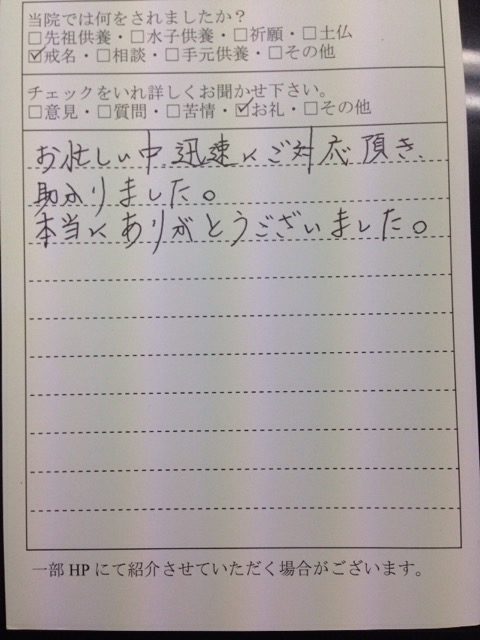 当院では何をされましたか？
□先祖供養・□水子供養・□祈願・□土仏
☑戒名・□相談・□手元供養・□その他
チェックをいれ詳しくお聞かせ下さい。
□意見・□質問・□苦情・☑お礼・□その他
お忙しい中、迅速にご対応頂き、
助かりました。
本当にありがとうございました。
一部 HP にて紹介させていただく場合がございます。